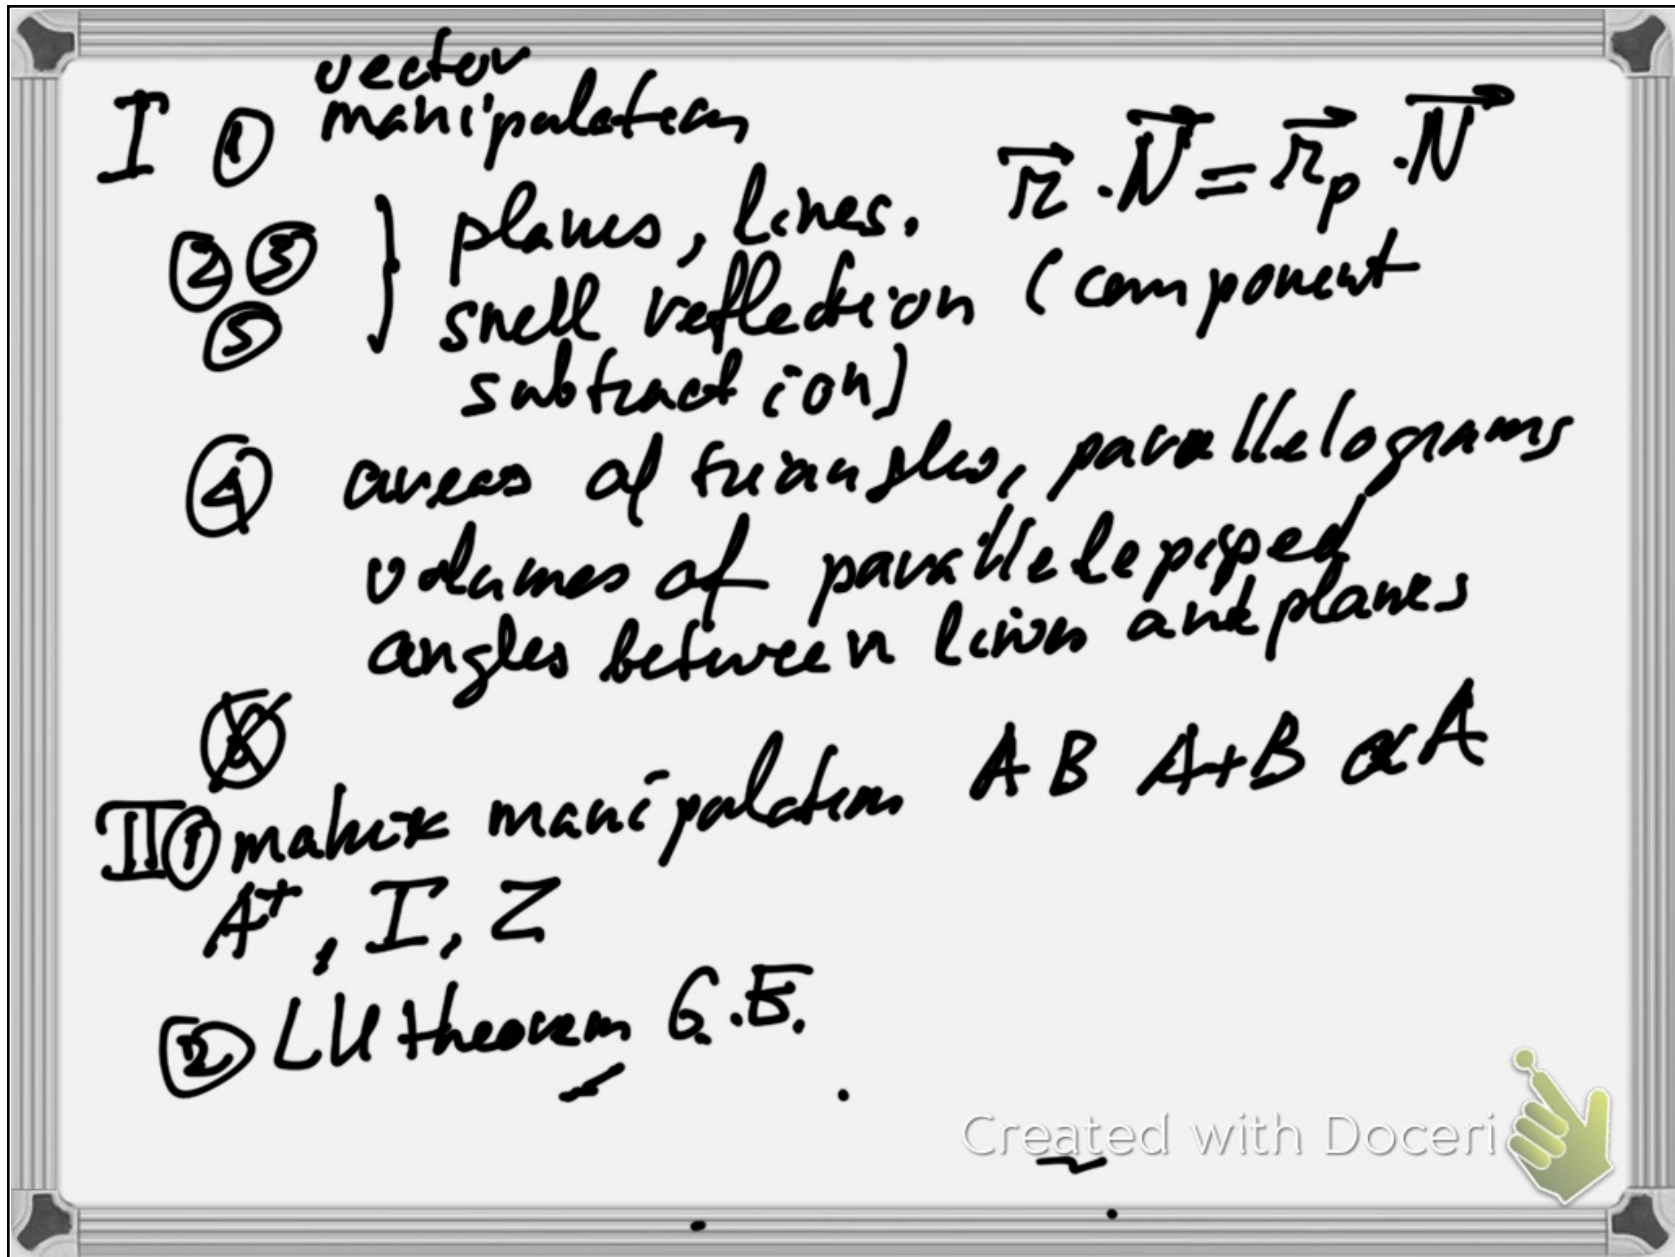 vector
I ① manipulation
② ③ } planes, lines. r⃗ · N⃗ = r⃗ₚ · N⃗
⑤ snell reflection (component
subtraction)
④ areas of triangles, parallelograms
volumes of parallelepiped
angles between lines and planes
II ① matrix manipulation AB A+B αA
A⁺, I, Z
② LU theorem G.E.
Created with Doceri